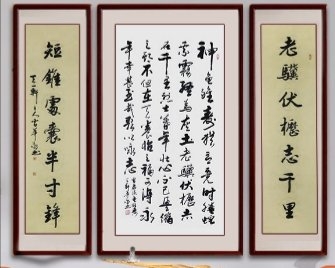 老驥伏櫪志千里
神龜雖壽猶有竟時騰蛇
乘霧終為土灰老驥伏櫪志
在千里烈士暮年壯心不已盈縮
之期不但在天養怡之福可得永
年幸甚至哉歌以詠志
短錐處囊半寸鋒